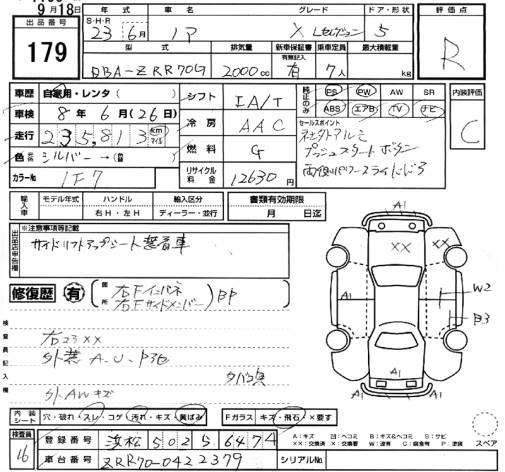 9月18日
出品番号
179
年式 車名 グレード ドア・形状
S・H・R
23年 6月 X Lセレクション 5
型式 排気量 新車保証書 乗車定員 最大積載量
有無記入
DBA-ZRR70G 2000cc 有 7人 kg
評価点
R
車歴 自家用・レンタ( )
車検 8年 6月(26日)
走行 235,813 km マイル
色 シルバー→(
カラーNo. 1F7
シフト IA/T
冷房 AAC
燃料 G
リサイクル料金 12630円
純正のみ
PS PW AW SR
ABS エアB TV ナビ
内装評価
C
セールスポイント
社外アルミ
プッシュスタートボタン
両側パワースライドドア
輸入車
モデル年式 ハンドル 輸入区分
右H・左H ディーラー・並行
書類有効期限
月 日迄
出品店申告欄
※注意事項等記載
サイドリフトアップシート装着車
修復歴 有
箇所
右Fインパネ
右Fサイドメンバー
BP
検査員記入欄
右23××
外装 A.U.P多
タバコ臭
外AWキズ
A1
××
××
A1
A1
W2
B3
A1
内装シート
穴・破れ・スレ・コゲ・汚れ・キズ・黄ばみ
Fガラス キズ・飛石 ×要す
検査員
16
登録番号 浜松 502 5 6474
車台番号 ZRR70-0422379
シリアルNo.
スペア